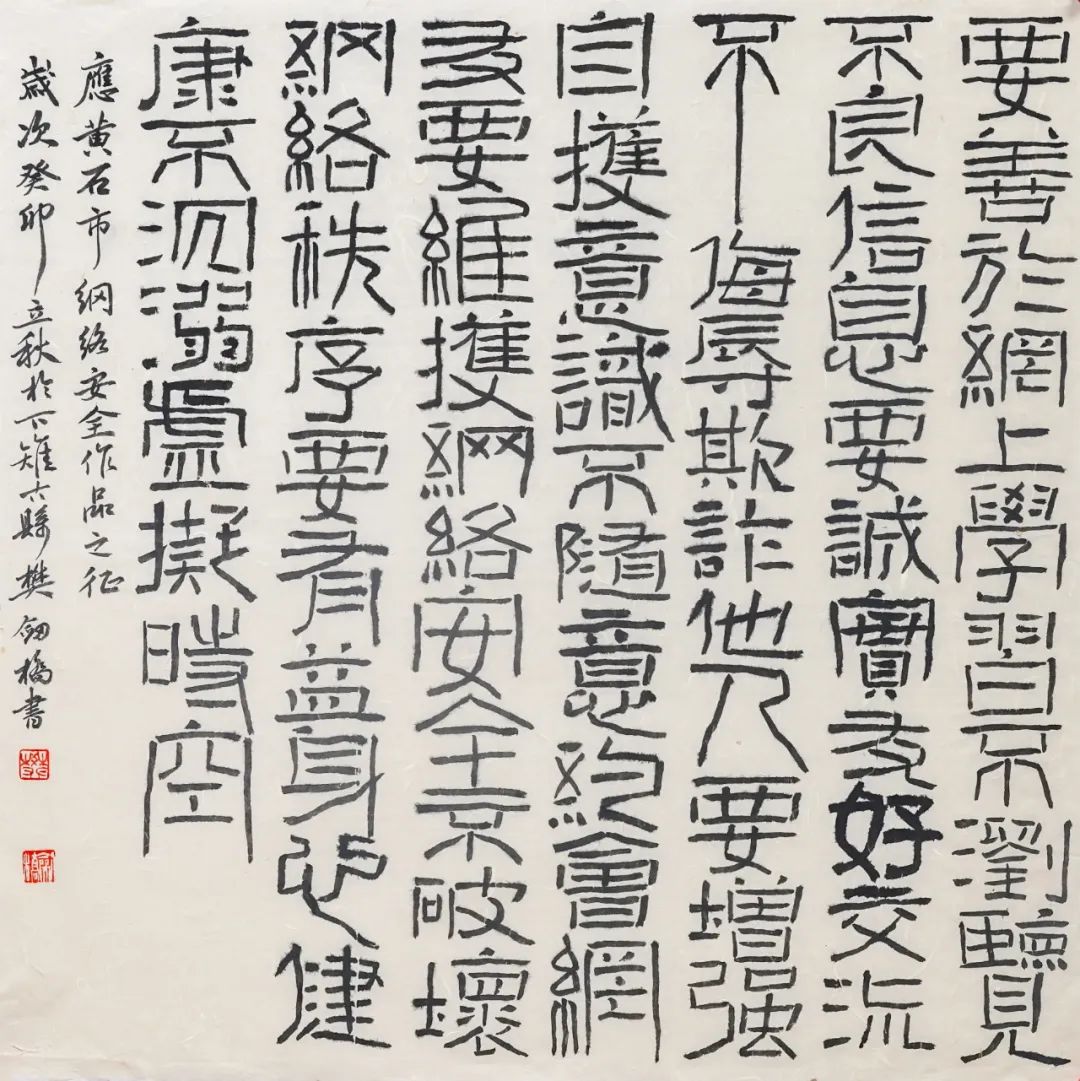 要善於網上學習不瀏覽
不良信息要誠實友好交流
不侮辱欺詐他人要增强
自護意識不隨意約會網
友要維護網絡安全不破壞
網絡秩序要有益身心健
康不沉溺虛擬時空
應黄石市網絡安全作品之征
歲次癸卯立秋於下雉古縣樊劍橋書